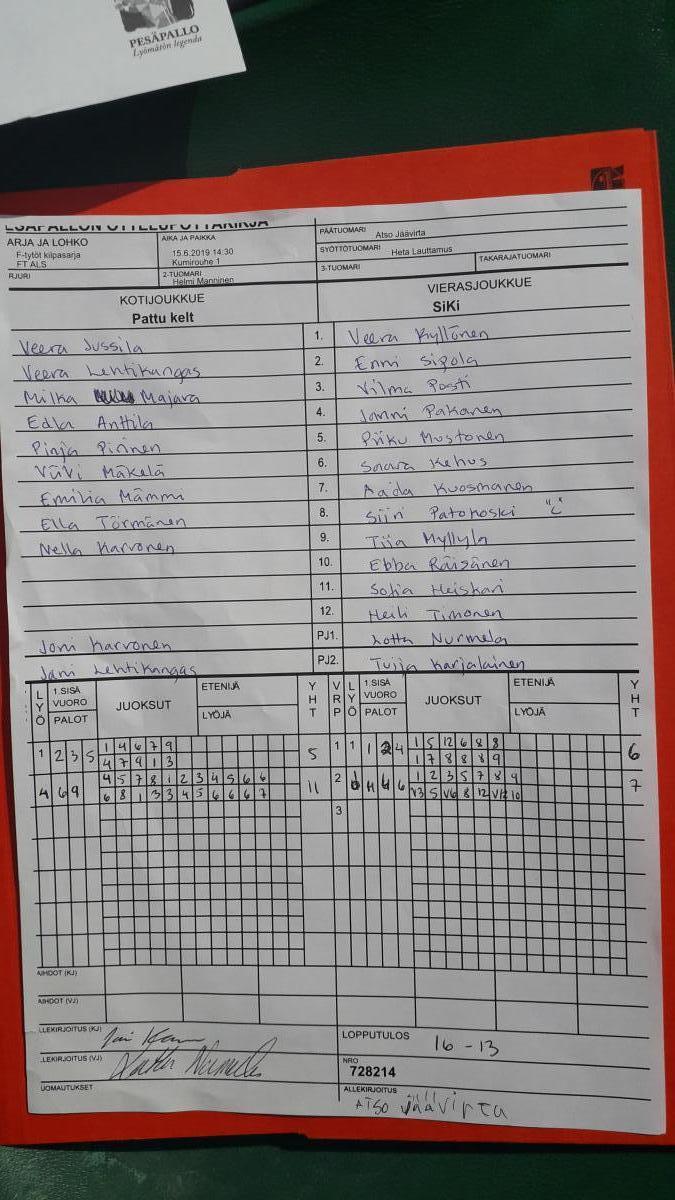 PESÄPALLO
Lyömätön legenda
ESÄPALLON OTTELUPÖYTÄKIRJA
ARJA JA LOHKO
F-tytöt kilpasarja
FT ALS
AIKA JA PAIKKA
15.6.2019 14:30
Kumirouhe 1
PÄÄTUOMARI Atso Jäävirta
SYÖTTÖTUOMARI Heta Lauttamus
RJURI
2-TUOMARI
Helmi Manninen
3-TUOMARI
TAKARAJATUOMARI
KOTIJOUKKUE
Pattu kelt
VIERASJOUKKUE
SiKi
Veera Jussila 1. Veera Kyllönen
Veera Lehtikangas 2. Enni Sipola
Milka Majava 3. Vilma Posti
Edla Anttila 4. Jonni Pakanen
Pinja Pirinen 5. Piiku Mustonen
Viivi Mäkelä 6. Saara Kehus
Emilia Mämmi 7. Aada Kuosmanen
Ella Törmänen 8. Siiri Patokoski "C"
Nella Karvonen 9. Tiia Myllylä
10. Ebba Räisänen
11. Sofia Heiskari
12. Heili Timonen
Joni Karvonen PJ1. Lotta Nurmela
Jani Lehtikangas PJ2. Tuija Karjalainen
LYÖ 1.SISÄ VUORO PALOT JUOKSUT ETENIJÄ LYÖJÄ YHT VRP LYÖ 1.SISÄ VUORO PALOT JUOKSUT ETENIJÄ LYÖJÄ YHT
1 2 3 5 1 4 6 7 9 5 1 1 1 2 4 1 5 12 6 8 8 6
4 7 9 1 3 1 7 8 8 8 9
4 6 9 4 5 7 8 1 2 3 4 5 6 6 11 2 6 4 6 6 1 2 3 5 7 8 9 7
6 8 1 3 3 4 5 6 6 6 7 V3 5 V6 8 12 V12 10
3
AIHDOT (KJ)
AIHDOT (VJ)
LLEKIRJOITUS (KJ)
LOPPUTULOS 16 - 13
LEKIRJOITUS (VJ) Lotta Nurmela
NRO
728214
UOMAUTUKSET
ALLEKIRJOITUS
ATSO Jäävirta